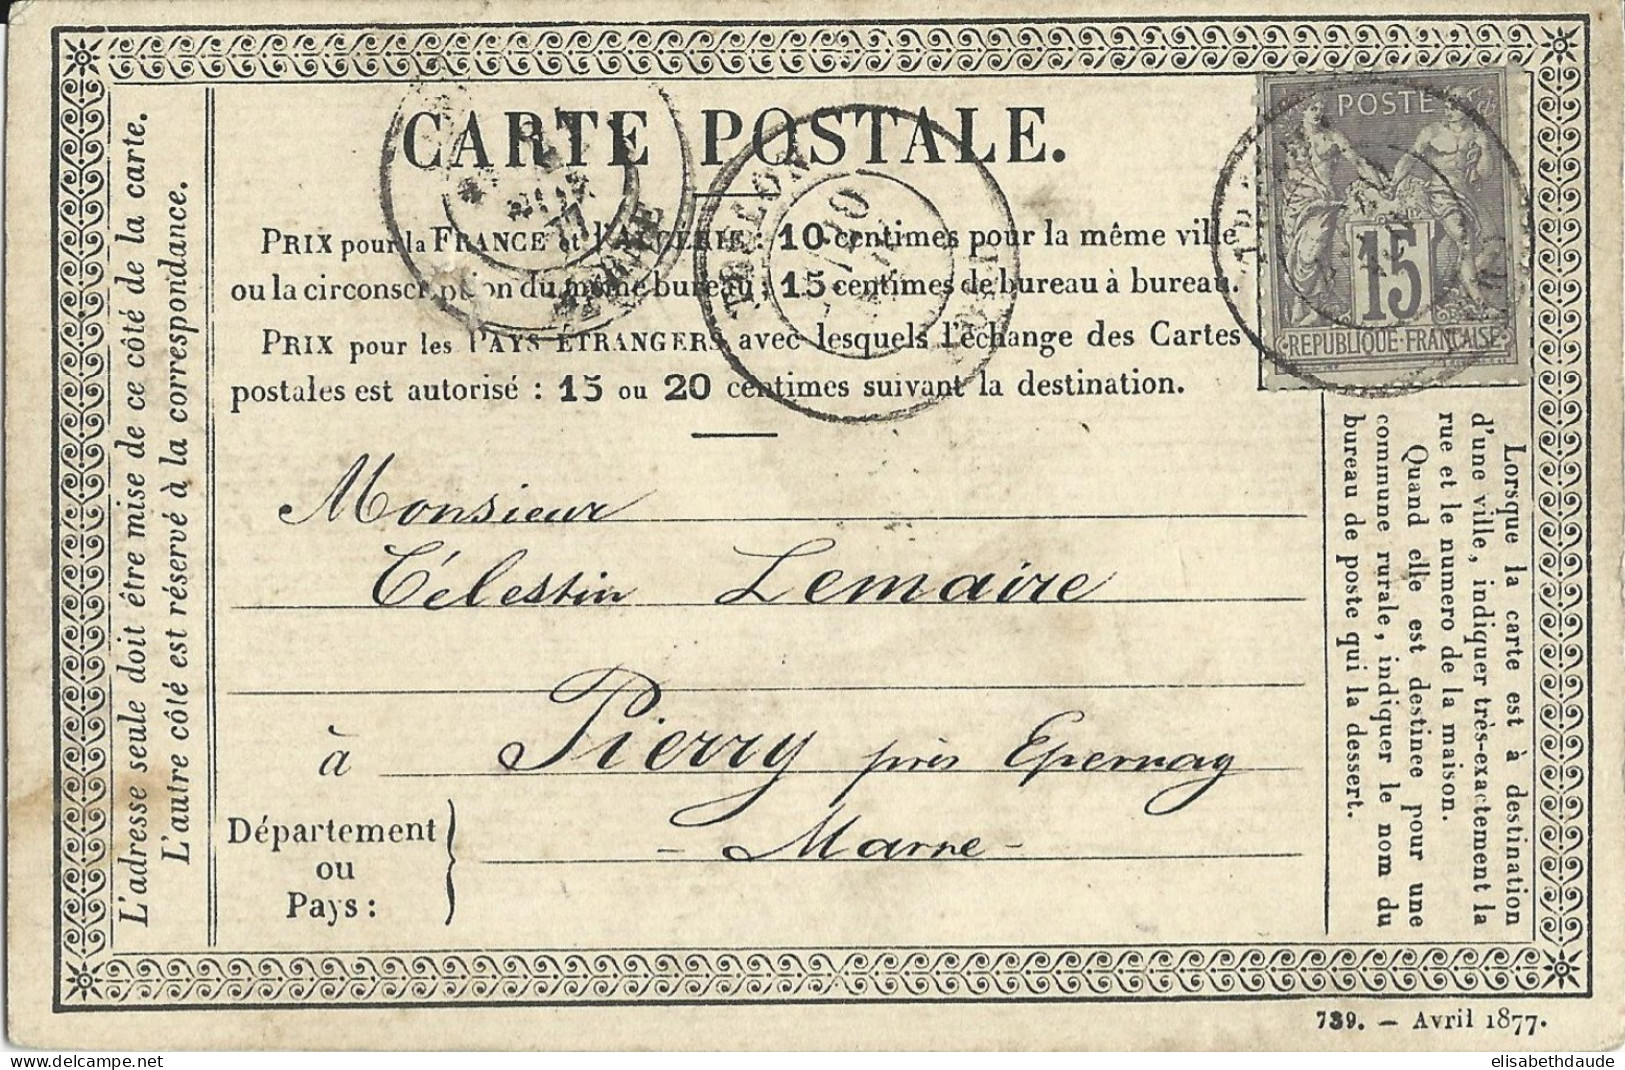 CARTE POSTALE.
PRIX pour la FRANCE et l'ALGÉRIE : 10 centimes pour la même ville
ou la circonscription du même bureau ; 15 centimes de bureau à bureau.
PRIX pour les PAYS ÉTRANGERS avec lesquels l'échange des Cartes
postales est autorisé : 15 ou 20 centimes suivant la destination.
POSTE
15
REPUBLIQUE FRANÇAISE
TOULON
77
L'adresse seule doit être mise de ce côté de la carte.
L'autre côté est réservé à la correspondance.
Monsieur
Célestin Lemaire
à Pierry près Epernay
Département
ou
Pays :
- Marne -
Lorsque la carte est à destination
d'une ville, indiquer très-exactement la
rue et le numero de la maison.
Quand elle est destinee pour une
commune rurale, indiquer le nom du
bureau de poste qui la dessert.
739. — Avril 1877.
elisabethdaude